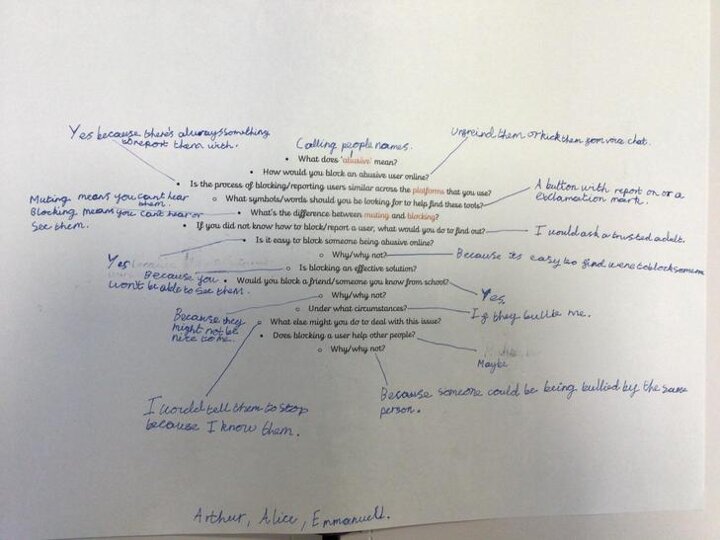 Yes because there's always something
to report them with.
Calling people names.
Unfreind them or kick them from voice chat.
• What does 'abusive' mean?
• How would you block an abusive user online?
• Is the process of blocking/reporting users similar across the platforms that you use?
A button with report on or a
exclamation mark.
○ What symbols/words should you be looking for to help find these tools?
Muting means you cant hear
them.
Blocking means you cant hear or
see them.
• What's the difference between muting and blocking?
• If you did not know how to block/report a user, what would you do to find out?
I would ask a trusted adult.
• Is it easy to block someone being abusive online?
○ Why/why not?
Because its easy to find were to block someone
Yes
○ Is blocking an effective solution?
Because you
won't be able to see them.
• Would you block a friend/someone you know from school?
Yes,
○ Why/why not?
Because they
might not be
nice to me.
○ Under what circumstances?
If they bullie me.
○ What else might you do to deal with this issue?
• Does blocking a user help other people?
Maybe
○ Why/why not?
Because someone could be being bullied by the same
person.
I would tell them to stop
because I know them.
Arthur, Alice, Emmanuell.